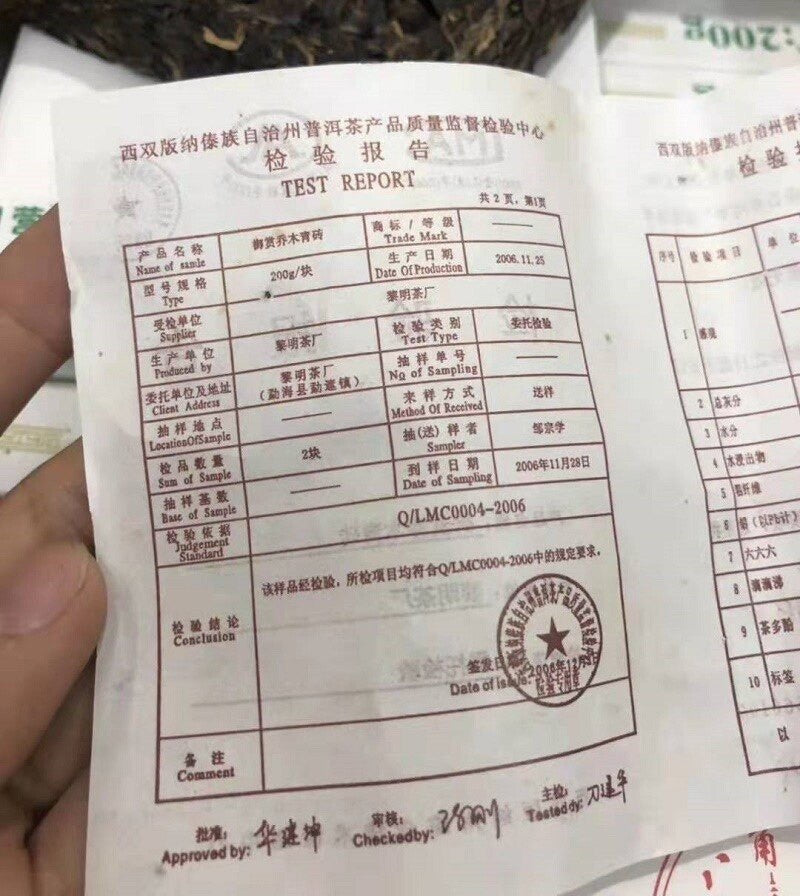 :200g
西双版纳傣族自治州普洱茶产品质量监督检验中心
检验报告
TEST REPORT
共2页,第1页
产品名称 Name of samle 御赏乔木青砖 商标/等级 Trade Mark ——
型号规格 Type 200g/块 生产日期 Date Of Production 2006.11.25
受检单位 Supplier 黎明茶厂
生产单位 Produced by 黎明茶厂 检验类别 Test Type 委托检验
委托单位及地址 Client Address 黎明茶厂 (勐海县勐遮镇) 抽样单号 No of Sampling ——
抽样地点 LocationOfSample —— 来样方式 Method Of Received 送样
检品数量 Sum of Sample 2块 抽(送)样者 Sampler 邹宗学
抽样基数 Base of Sample —— 到样日期 Date of Sampling 2006年11月28日
检验依据 Judgement Standard Q/LMC0004-2006
检验结论 Conclusion 该样品经检验,所检项目均符合Q/LMC0004-2006中的规定要求。
签发日
Date of issue 2006年12月
检验专用章
备注 Comment
批准: Approved by: 华建坤 审核: Checkedby: 主检: Testeddy: 刀建华
西双版纳傣族自治州普洱茶
检验
序号 检验项目 单位
1 感观
2 总灰分
3 水分
4 水浸出物
5 粗纤维
6 铅(以Pb计)
7 六六六
8 滴滴涕
9 茶多酚
10 标签
以